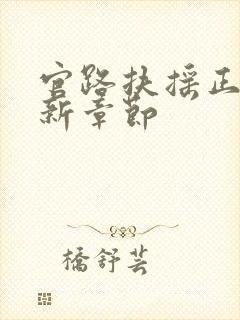 官路扶摇正
新章节
橋舒芸